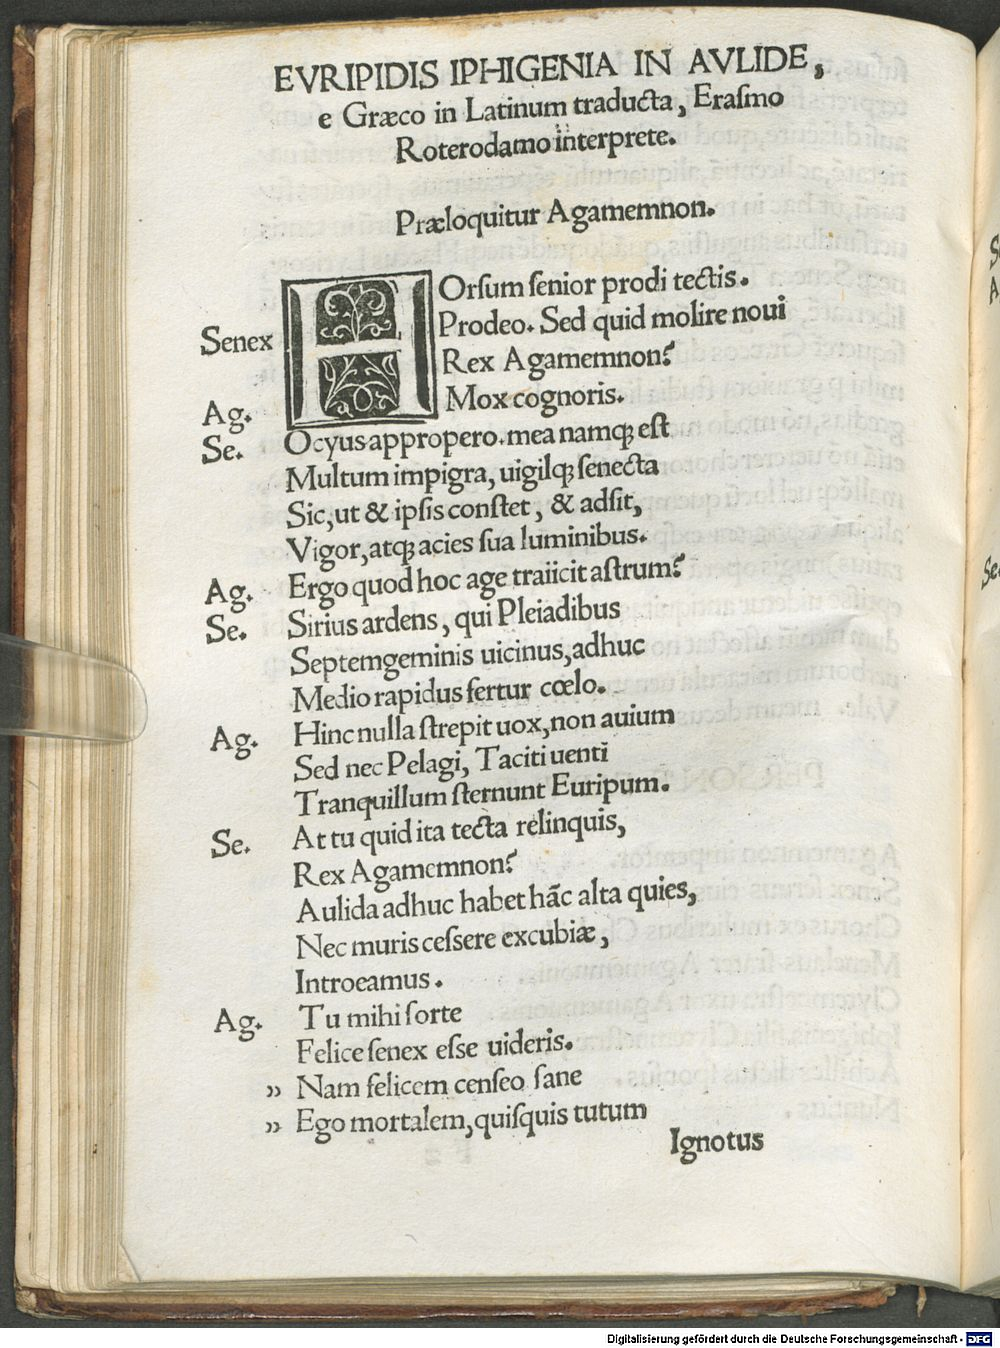 EVRIPIDIS IPHIGENIA IN AVLIDE,
e Græco in Latinum traducta, Eraſmo
Roterodamo interprete.
Præloquitur Agamemnon.
HOrſum ſenior prodi tectis.
Senex Prodeo. Sed quid molire noui
Rex Agamemnon?
Ag. Mox cognoris.
Se. Ocyus appropero. mea namqꝫ eſt
Multum impigra, uigilqꝫ ſenecta
Sic, ut & ipſis conſtet, & adſit,
Vigor, atqꝫ acies ſua luminibus.
Ag. Ergo quod hoc age traiicit aſtrum?
Se. Sirius ardens, qui Pleiadibus
Septemgeminis uicinus, adhuc
Medio rapidus fertur cœlo.
Ag. Hinc nulla ſtrepit uox, non auium
Sed nec Pelagi, Taciti uenti
Tranquillum ſternunt Euripum.
Se. At tu quid ita tecta relinquis,
Rex Agamemnon?
Aulida adhuc habet hãc alta quies,
Nec muris ceſſere excubiæ,
Introeamus.
Ag. Tu mihi ſorte
Felice ſenex eſſe uideris.
„ Nam felicem cenſeo ſane
„ Ego mortalem, quiſquis tutum
Ignotus
Digitalisierung gefördert durch die Deutsche Forschungsgemeinschaft - DFG